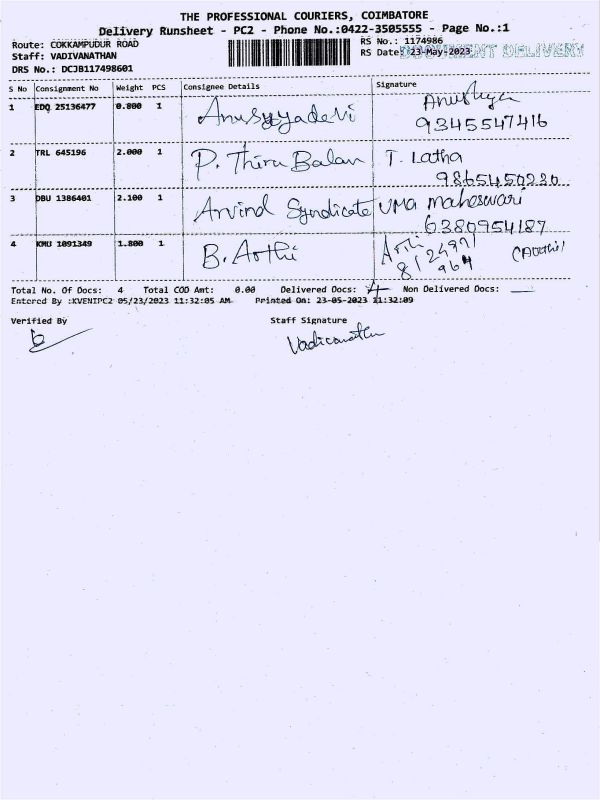 THE PROFESSIONAL COURIERS, COIMBATORE
Delivery Runsheet - PC2 - Phone No.:0422-3505555 - Page No.:1
Route: COKKAMPUDUR ROAD
RS No.: 1174986
Staff: VADIVANATHAN
RS Date: 23-May-2023
DOCUMENT DELIVERY
DRS No.: DCJB117498601
S No Consignment No Weight PCS Consignee Details Signature
1 EDQ 25136477 0.800 1 Anusyyadevi Anushya
9345547416
2 TRL 645196 2.000 1 P. Thiru Balan T. Latha
9865450230
3 DBU 1386401 2.100 1 Arvind Syndicate UMA maheswari
6380954187
4 KMU 1091349 1.800 1 B. Arthi Arthi
Total No. Of Docs: 4 Total COD Amt: 0.00 Delivered Docs: 4 Non Delivered Docs:
Entered By :KVENIPC2 05/23/2023 11:32:05 AM Printed On: 23-05-2023 11:32:09
Verified By Staff Signature
Vadivanathan